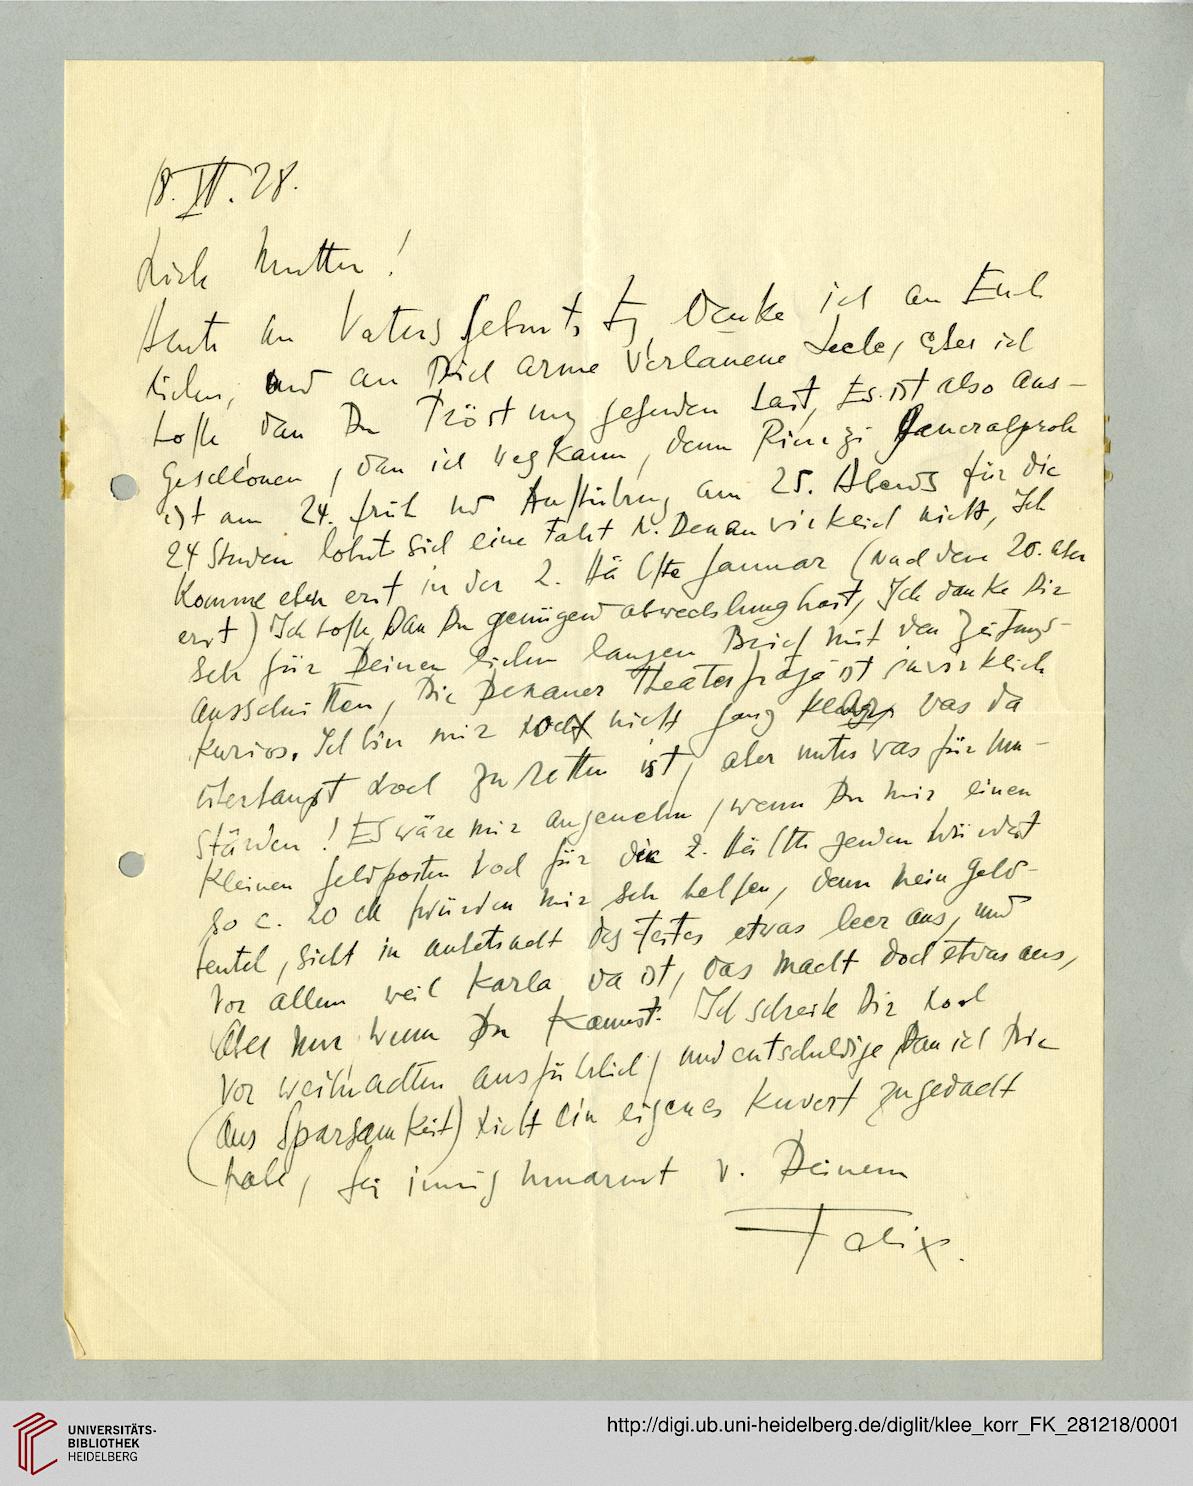 18.XII.28.
Liebe Mutter!
Heute an Vaters Geburtstag denke ich an Euch
Lieben, und an Dich arme Verlassene Seele, aber ich
hoffe dass Du Tröstung gefunden hast, Es ist also aus-
geschlossen, dass ich weg kann, denn Rienzi Generalprobe
ist am 24. früh und Aufführung am 25. Abends für die
24 Stunden lohnt sich eine Fahrt n. Dessau wirklich nicht, Ich
komme eben erst in der 2. Hälfte Januar (nach dem 20. aber
erst) Ich hoffe, dass Du genügend abwechslung hast, Ich danke Dir
sehr für Deinen lieben langen Brief mit den Zeitungs-
ausschnitten, Die Dessauer Theaterfrage ist ja wirklich
kurios. Ich bin mir noch nicht ganz klar, was da
überhaupt noch zu retten ist, aber unter was für Um-
ständen! Es wäre mir angenehm, wenn Du mir einen
kleinen Geldposten noch für die 2. Hälfte senden würdest
so c. 20 M würden mir sehr helfen, denn mein Geld-
beutel, sieht in anbetracht des Festes etwas leer aus, und
vor allem weil Karla da ist, das macht doch etwas aus,
Aber nur wenn Du kannst. Ich schreibe Dir noch
vor Weihnachten ausführlich, und entschuldige, dass ich Dir
(aus Sparsamkeit) nicht ein eigenes Kuvert zugedacht
habe, sei innig umarmt v. Deinem
Felix.
UNIVERSITÄTS-
BIBLIOTHEK
HEIDELBERG
http://digi.ub.uni-heidelberg.de/diglit/klee_korr_FK_281218/0001